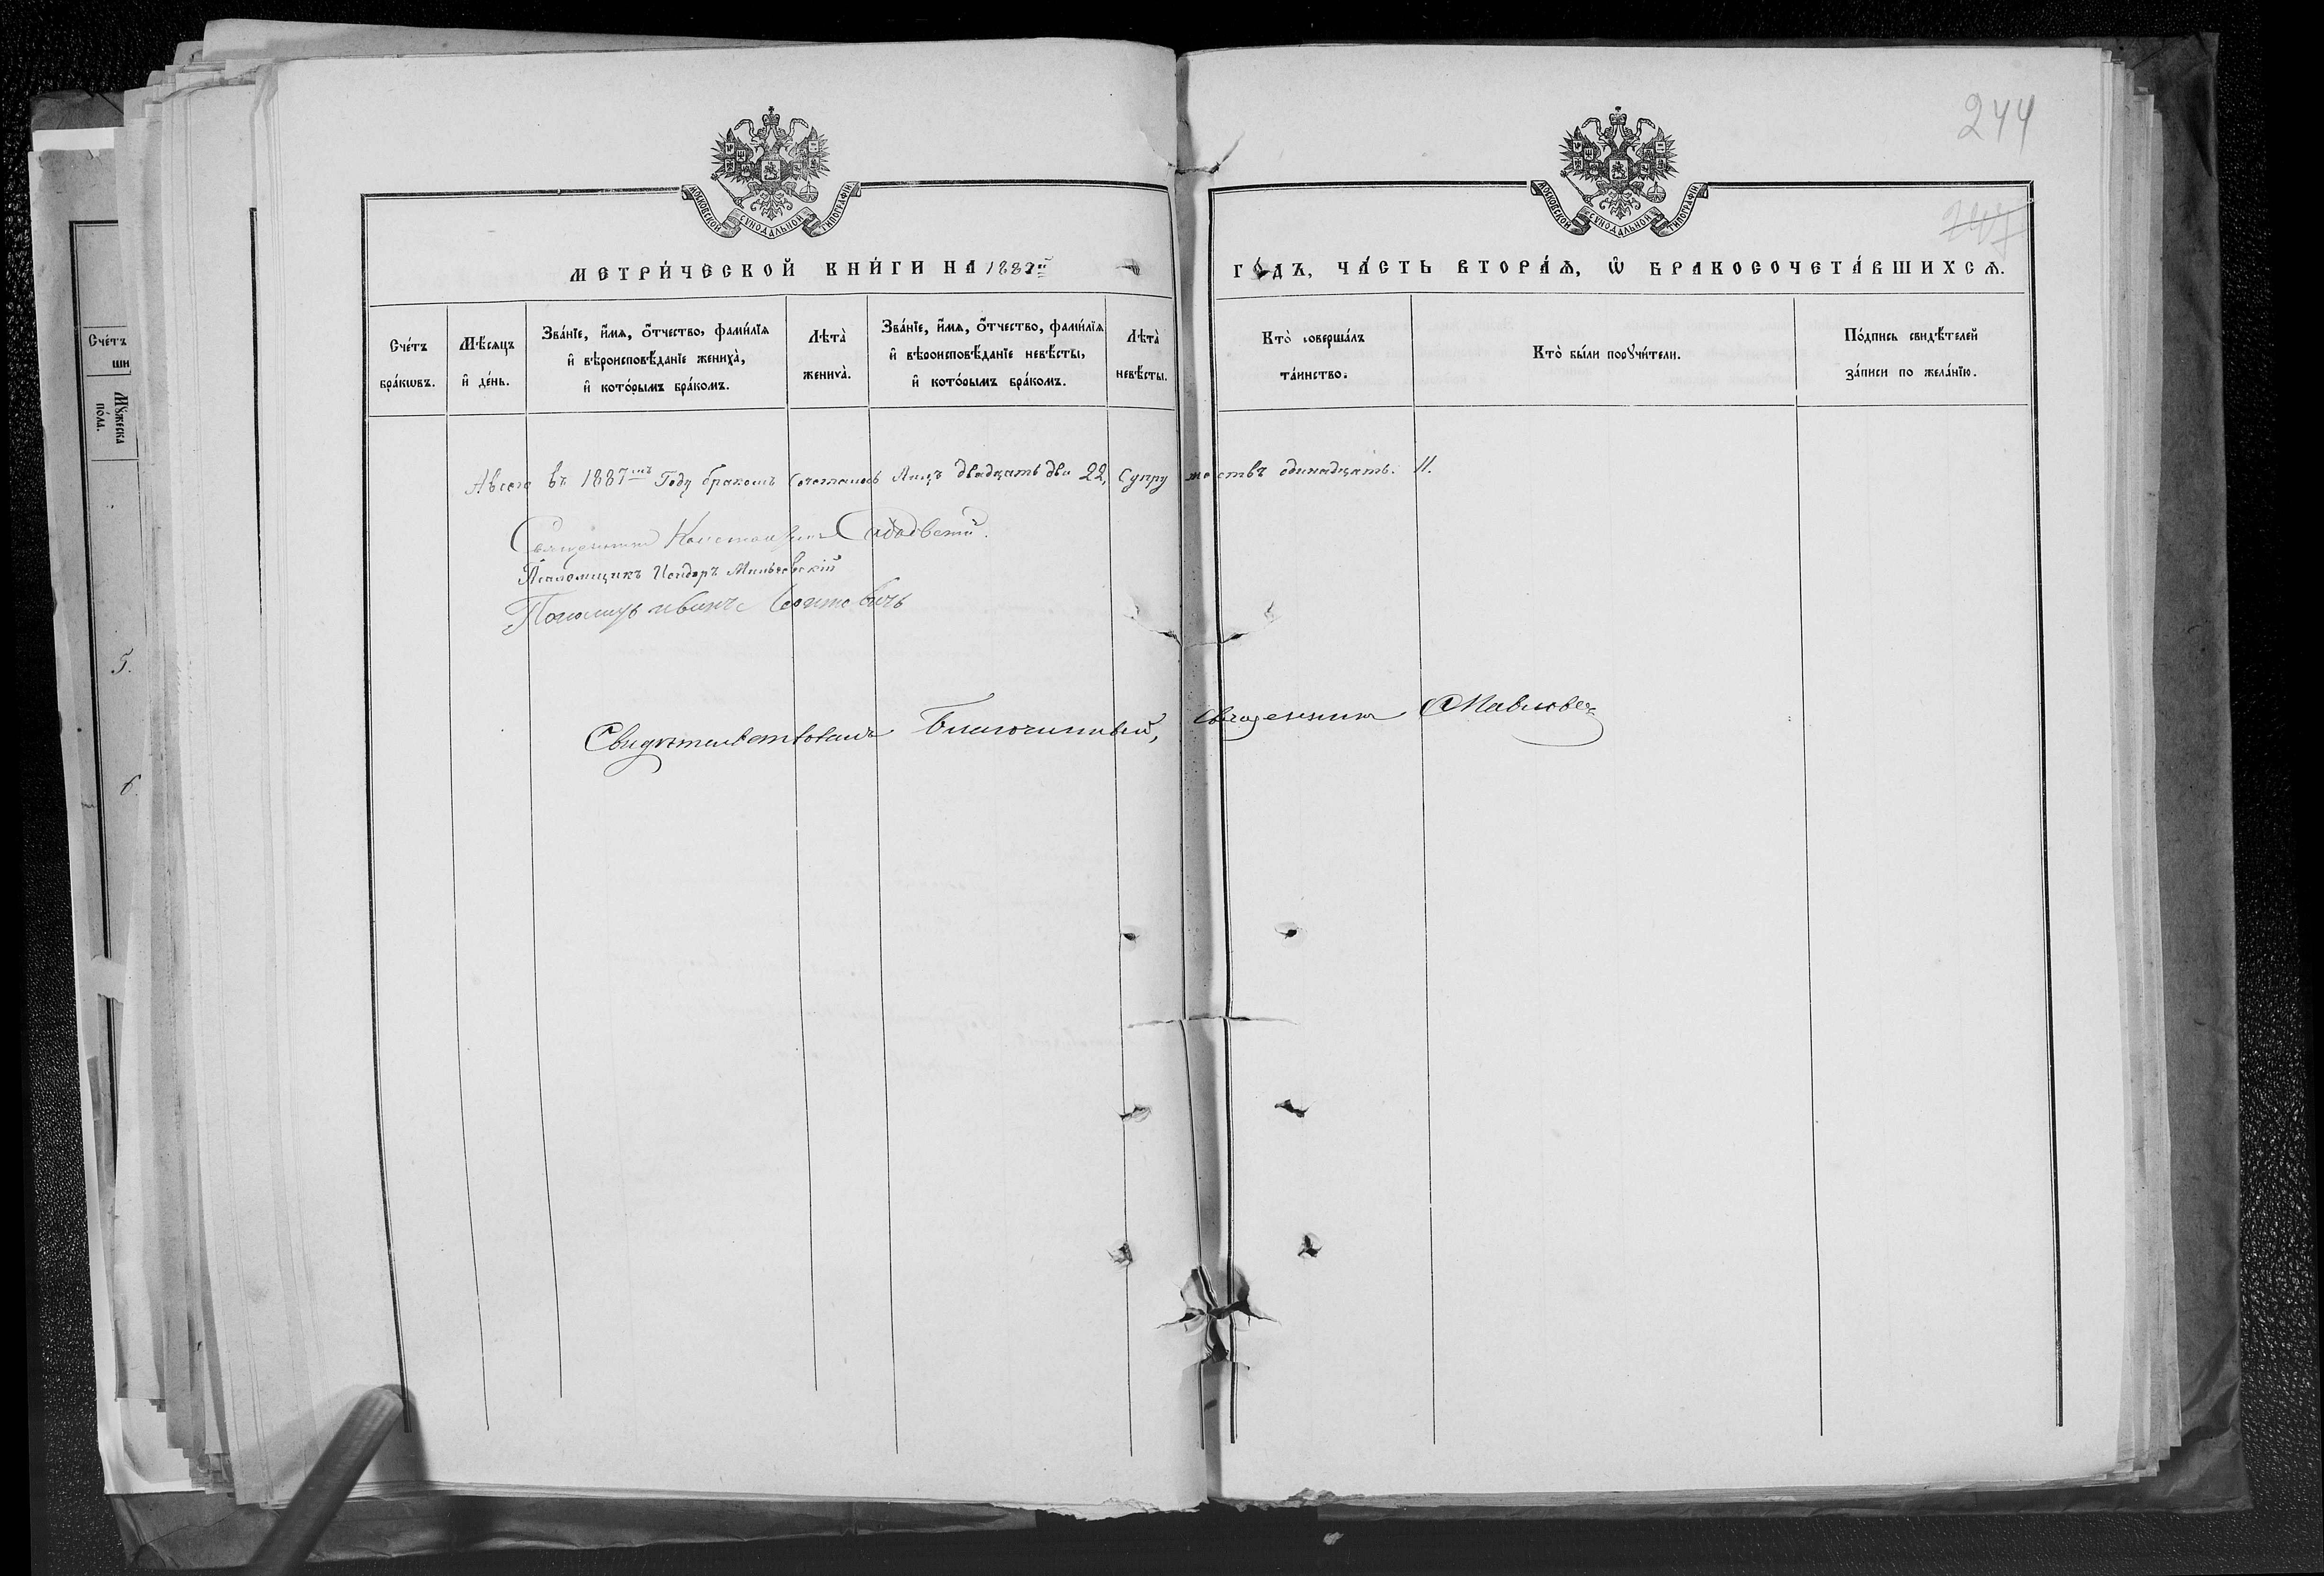 244
247
МОСКОВСКОЙ СѴНОДАЛЬНОЙ ТИПОГРАФІИ
МОСКОВСКОЙ СѴНОДАЛЬНОЙ ТИПОГРАФІИ
МЕТРИ́ЧЕСКОЙ КНИ́ГИ НА 1887й ГО́ДЪ, ЧА́СТЬ ВТОРА́Ѧ, Ѽ БРАКОСОЧЕТА́ВШИХСѦ.
Сче́тъ бра́кѡвъ.
Мѣ́сяцъ и҆ де́нь.
Зва́нїе, и҆́мя, ѻ҆́тчество, фами́лїя и҆ вѣроисповѣ́данїе жениха̀, и҆ кото́рымъ бра́комъ.
Лѣта̀ жениха̀.
Зва́нїе, и҆́мя, ѻ҆́тчество, фами́лїя и҆ вѣроисповѣ́данїе невѣ́сты, и҆ кото́рымъ бра́комъ.
Лѣта̀ невѣ́сты.
Кто̀ соверша́лъ та́инство.
Кто̀ бы́ли порꙋчи́тели.
По́дпись свидѣ́телей за́писи по жела́нїю.
Авсего въ 1887мъ Году бракомъ Сочеталось Лицъ двадцать два 22, Супружествъ одинадцать. 11.
Священникъ Константинъ
Псаломщикъ Исидоръ
Свидѣтельствовалъ Благочинный, Священникъ
Сче́тъ
ши
Мꙋ́жеска по́ла.
5.
6.